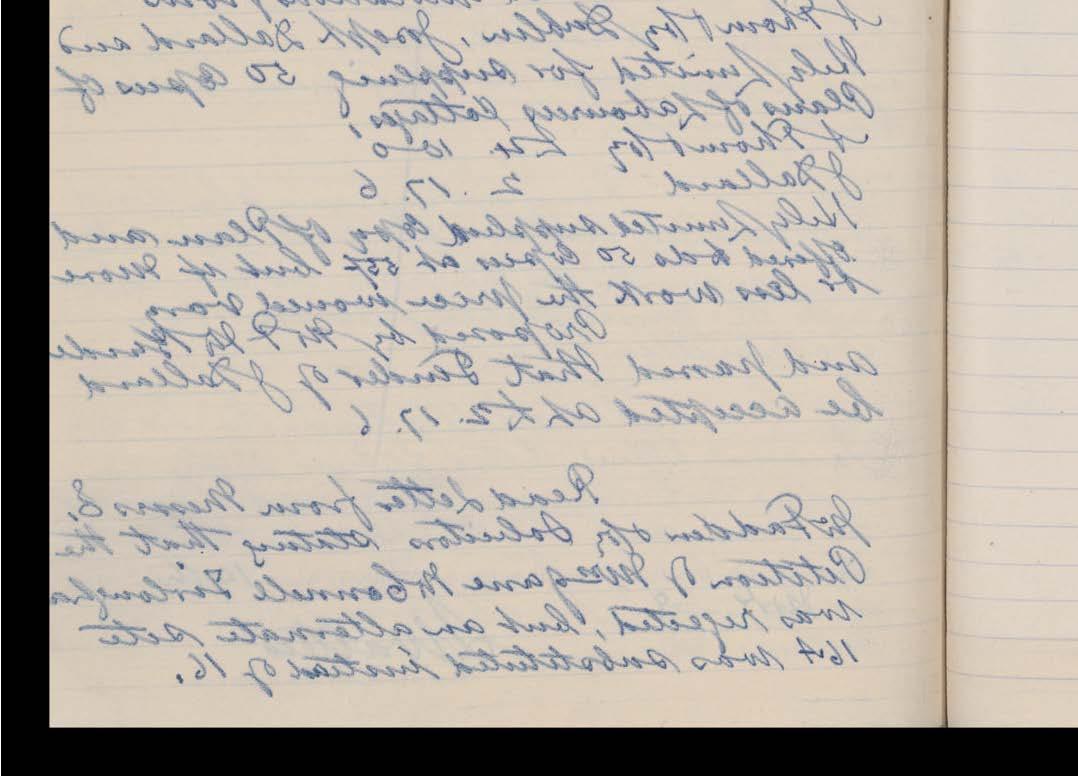 A Thom & Coy Dublin, Joseph Dollard and
Hely Limited for supplying 50 Copies of
Plans of Labourers Cottages,
A Thom & Coy £4. 10. 0
J Dollard 2. 17. 6
Hely Limited supplied Copy of Plan and
offered to do 50 Copies at 55/- but if more
or less work the price would vary
Proposed by Mr
and passed that Tender of J Dollard
be accepted at £2. 17. 6
Read Letter from Messrs E.
McFadden & Coy Solicitors stating that the
Petition of McConnell
was rejected, but an alternate site
16A was substituted instead of 16.